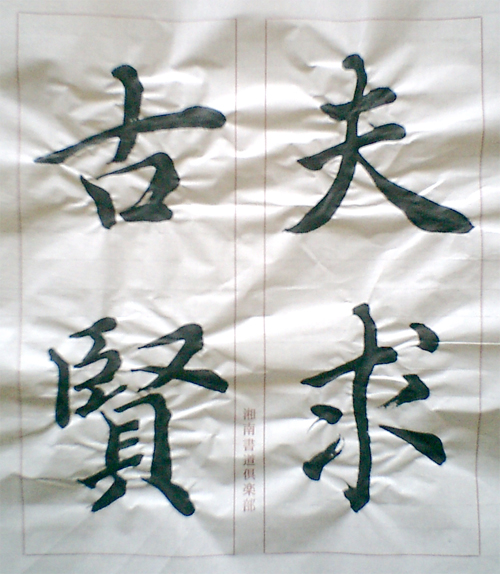 夫求
古賢
湘南書道倶楽部